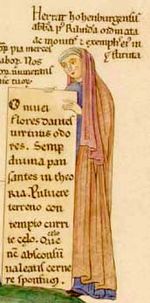 Herrat hohenburgensis
abba p' Rilinda ordinata
ac monit' & exempl' ei' in
stituta
pia merce
labor. Nos
O nivei
flores dantes
virtutis odo
res. Semp
divina pau
santes in theo
ria. Pulvere
terreno con
tempto curri
te celo. Quo
nc absconsum
valeatis cerne
re sponsum.